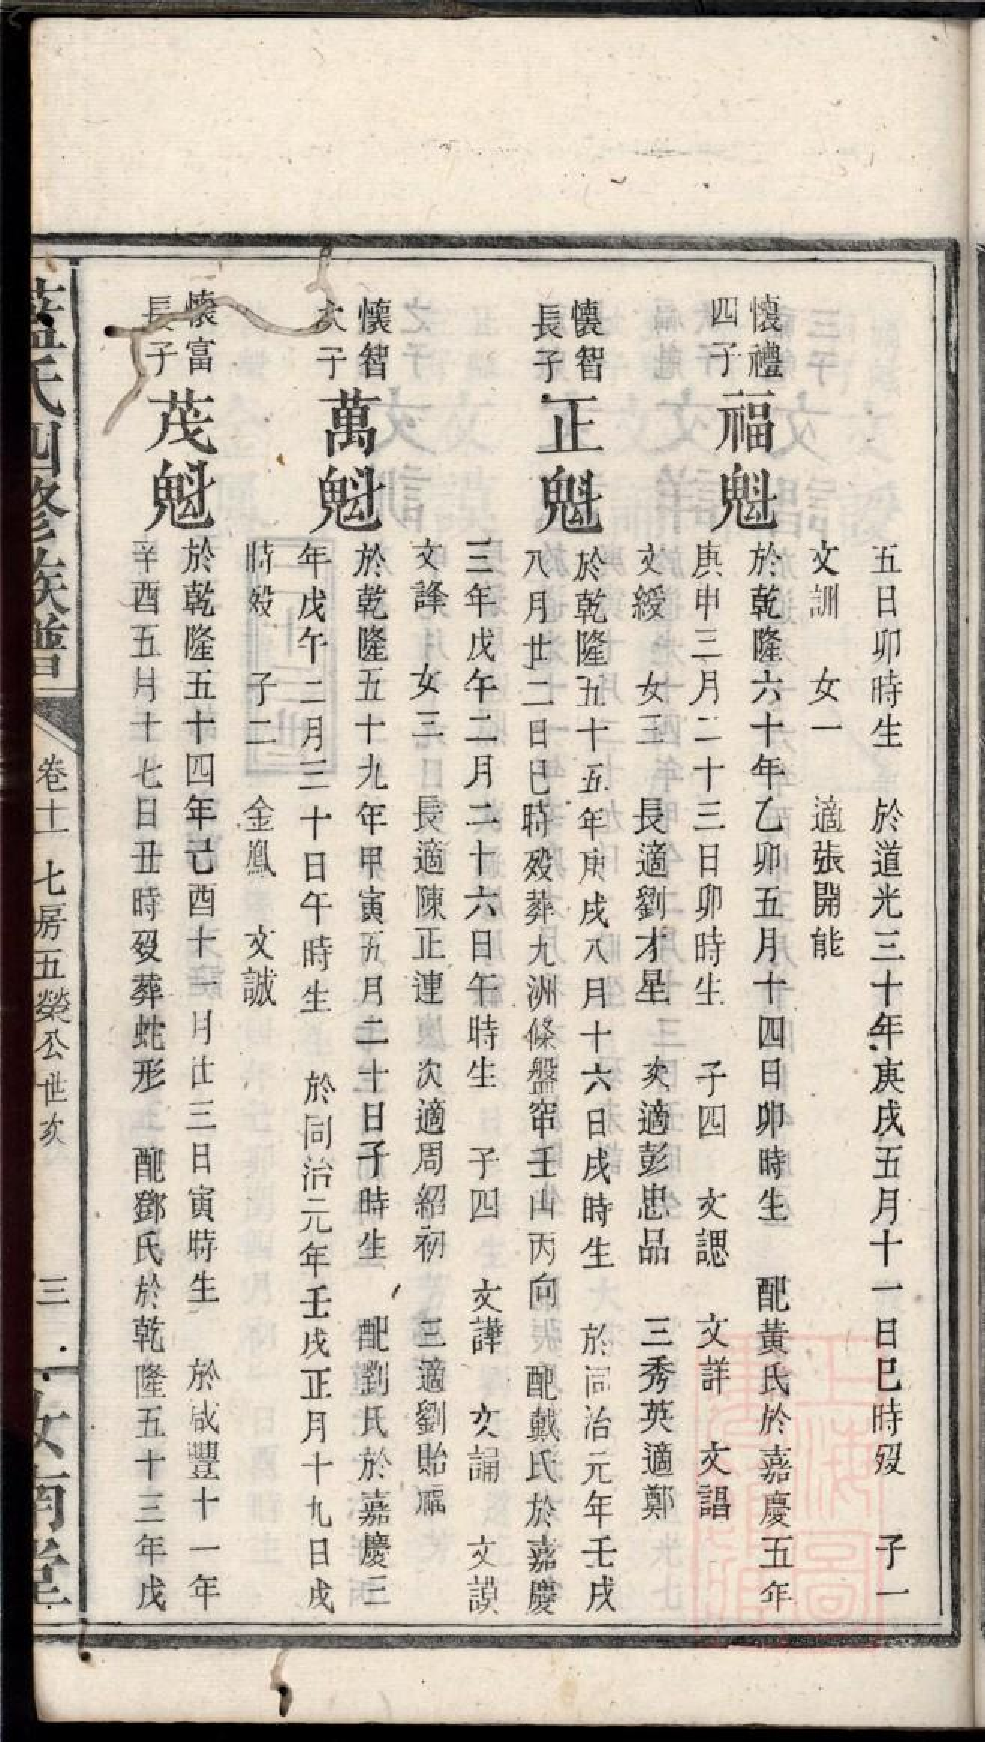 五日卯時生　於道光三十年庚戌五月十一日巳時歿　子一
文訓　女一　適張開能
懷禮四子
福魁
於乾隆六十年乙卯五月十四日卯時生　配黃氏於嘉慶五年
庚申三月二十三日卯時生　子四　文諰　文詳　文誯
文綬　女三　長適劉才星　次適彭忠品　三秀英適鄭
懷智長子
正魁
於乾隆五十五年庚戌八月十六日戌時生　於同治元年壬戌
八月廿二日巳時歿葬九洲條盤窂壬山丙向　配戴氏於嘉慶
三年戊午二月二十六日午時生　子四　文譁　文誦　文謨
文諱　女三　長適陳正連　次適周紹初　三適劉貽福
懷智次子
萬魁
於乾隆五十九年甲寅五月二十日子時生　配劉氏於嘉慶三
年戊午二月三十日午時生　於同治元年壬戌正月十九日戌
時歿　子二　金鳳　文誠
懷富長子
茂魁
於乾隆五十四年己酉十一月廿三日寅時生　於咸豐十一年
辛酉五月十七日丑時歿葬蛇形　配鄧氏於乾隆五十三年戊
藍氏四修族譜　卷十一　七房五榮公世次　三　汝南堂